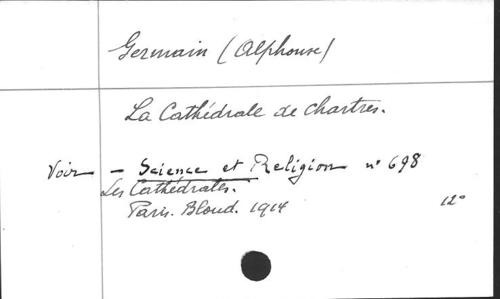 Germain (Alphonse)
La Cathédrale de Chartres.
Voir - Science et Religion n° 698
Les Cathédrales.
Paris. Bloud. 1914 12°